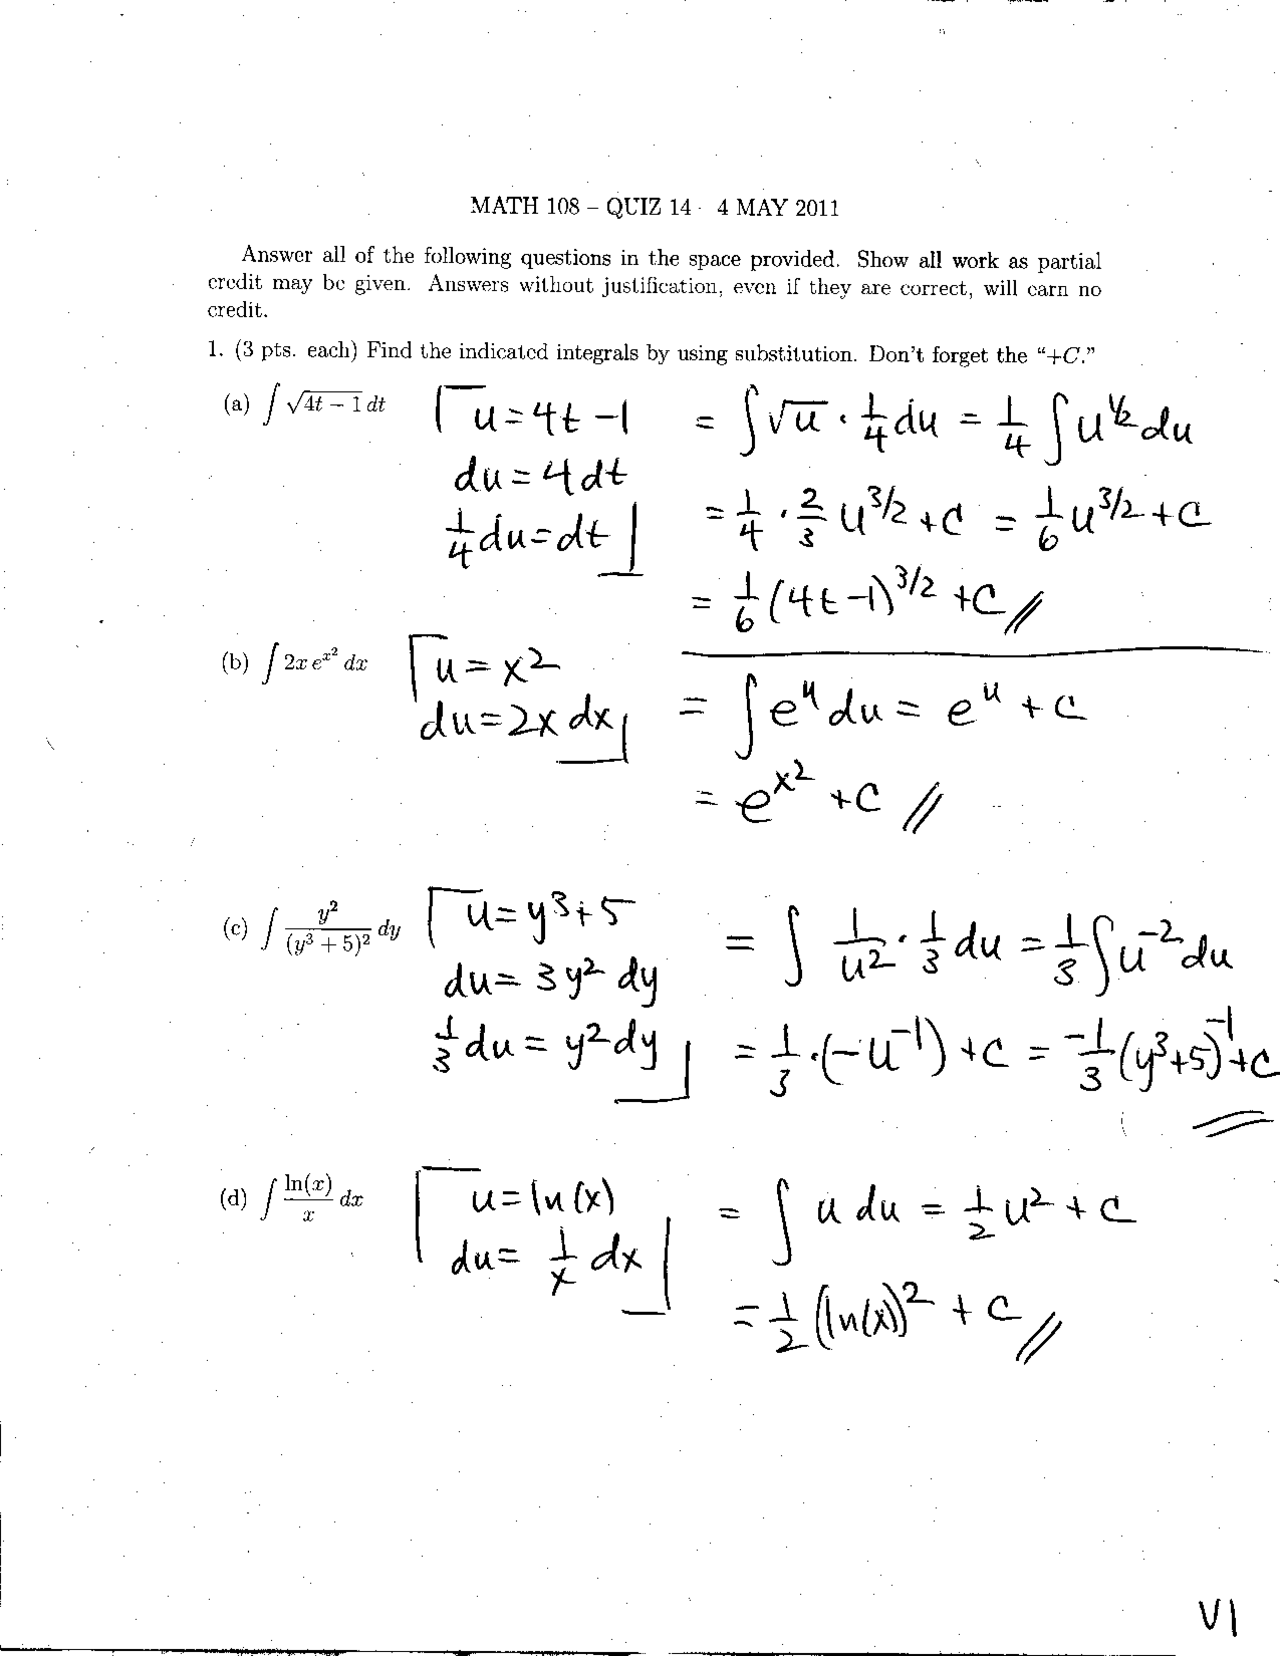 MATH 108 – QUIZ 14 - 4 MAY 2011
Answer all of the following questions in the space provided. Show all work as partial
credit may be given. Answers without justification, even if they are correct, will earn no
credit.
1. (3 pts. each) Find the indicated integrals by using substitution. Don't forget the “+C.”
(a) ∫ √(4t − 1) dt
u = 4t − 1
du = 4 dt
1/4 du = dt
= ∫ √u · 1/4 du = 1/4 ∫ u^(1/2) du
= 1/4 · 2/3 u^(3/2) + C = 1/6 u^(3/2) + C
= 1/6 (4t − 1)^(3/2) + C //
(b) ∫ 2x e^(x²) dx
u = x²
du = 2x dx
= ∫ e^u du = e^u + C
= e^(x²) + C //
(c) ∫ y²/(y³ + 5)² dy
u = y³ + 5
du = 3y² dy
1/3 du = y² dy
= ∫ 1/u² · 1/3 du = 1/3 ∫ u^(−2) du
= 1/3 · (−u^(−1)) + C = −1/3 (y³ + 5)^(−1) + C //
(d) ∫ ln(x)/x dx
u = ln(x)
du = 1/x dx
= ∫ u du = 1/2 u² + C
= 1/2 (ln(x))² + C //
V1